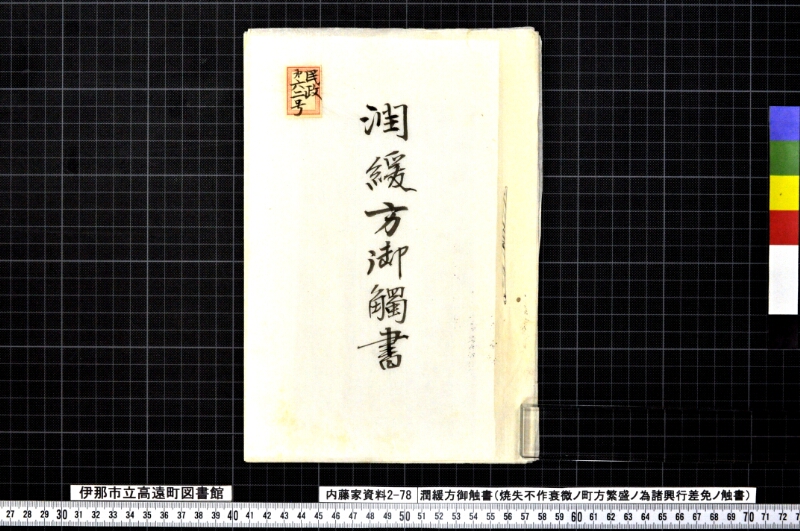 民政
第六二号
潤緩方御觸書
伊那市立高遠町図書館
内藤家資料2-78
潤緩方御触書(焼失不作衰微ノ町方繁盛ノ為諸興行差免ノ触書)
27 28 29 30 31 32 33 34 35 36 37 38 39 40 41 42 43 44 45 46 47 48 49 50 51 52 53 54 55 56 57 58 59 60 61 62 63 64 65 66 67 68 69 70 71 72